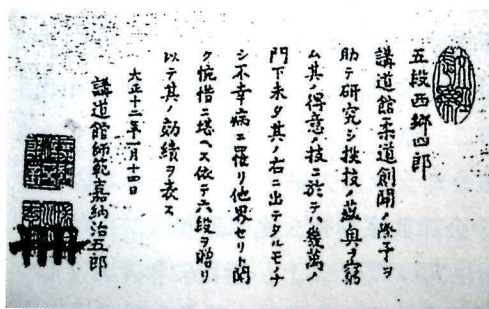 五段西郷四郎
講道館柔道創開ノ際予ヲ
助テ研究シ投技ノ蘊奥ヲ窮
ム其ノ得意ノ技ニ於テハ幾萬ノ
門下未タ其ノ右ニ出テタルモノナ
シ不幸病ニ罹リ他界セリト聞
ク惋惜ニ堪ヘス依テ六段ヲ贈リ
以テ其ノ効績ヲ表ス
大正十二年一月十四日
講道館師範嘉納治五郎